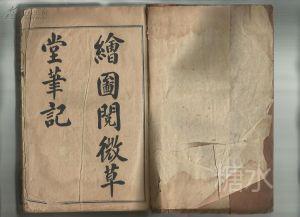 繪圖閱微草
堂筆記
糖水